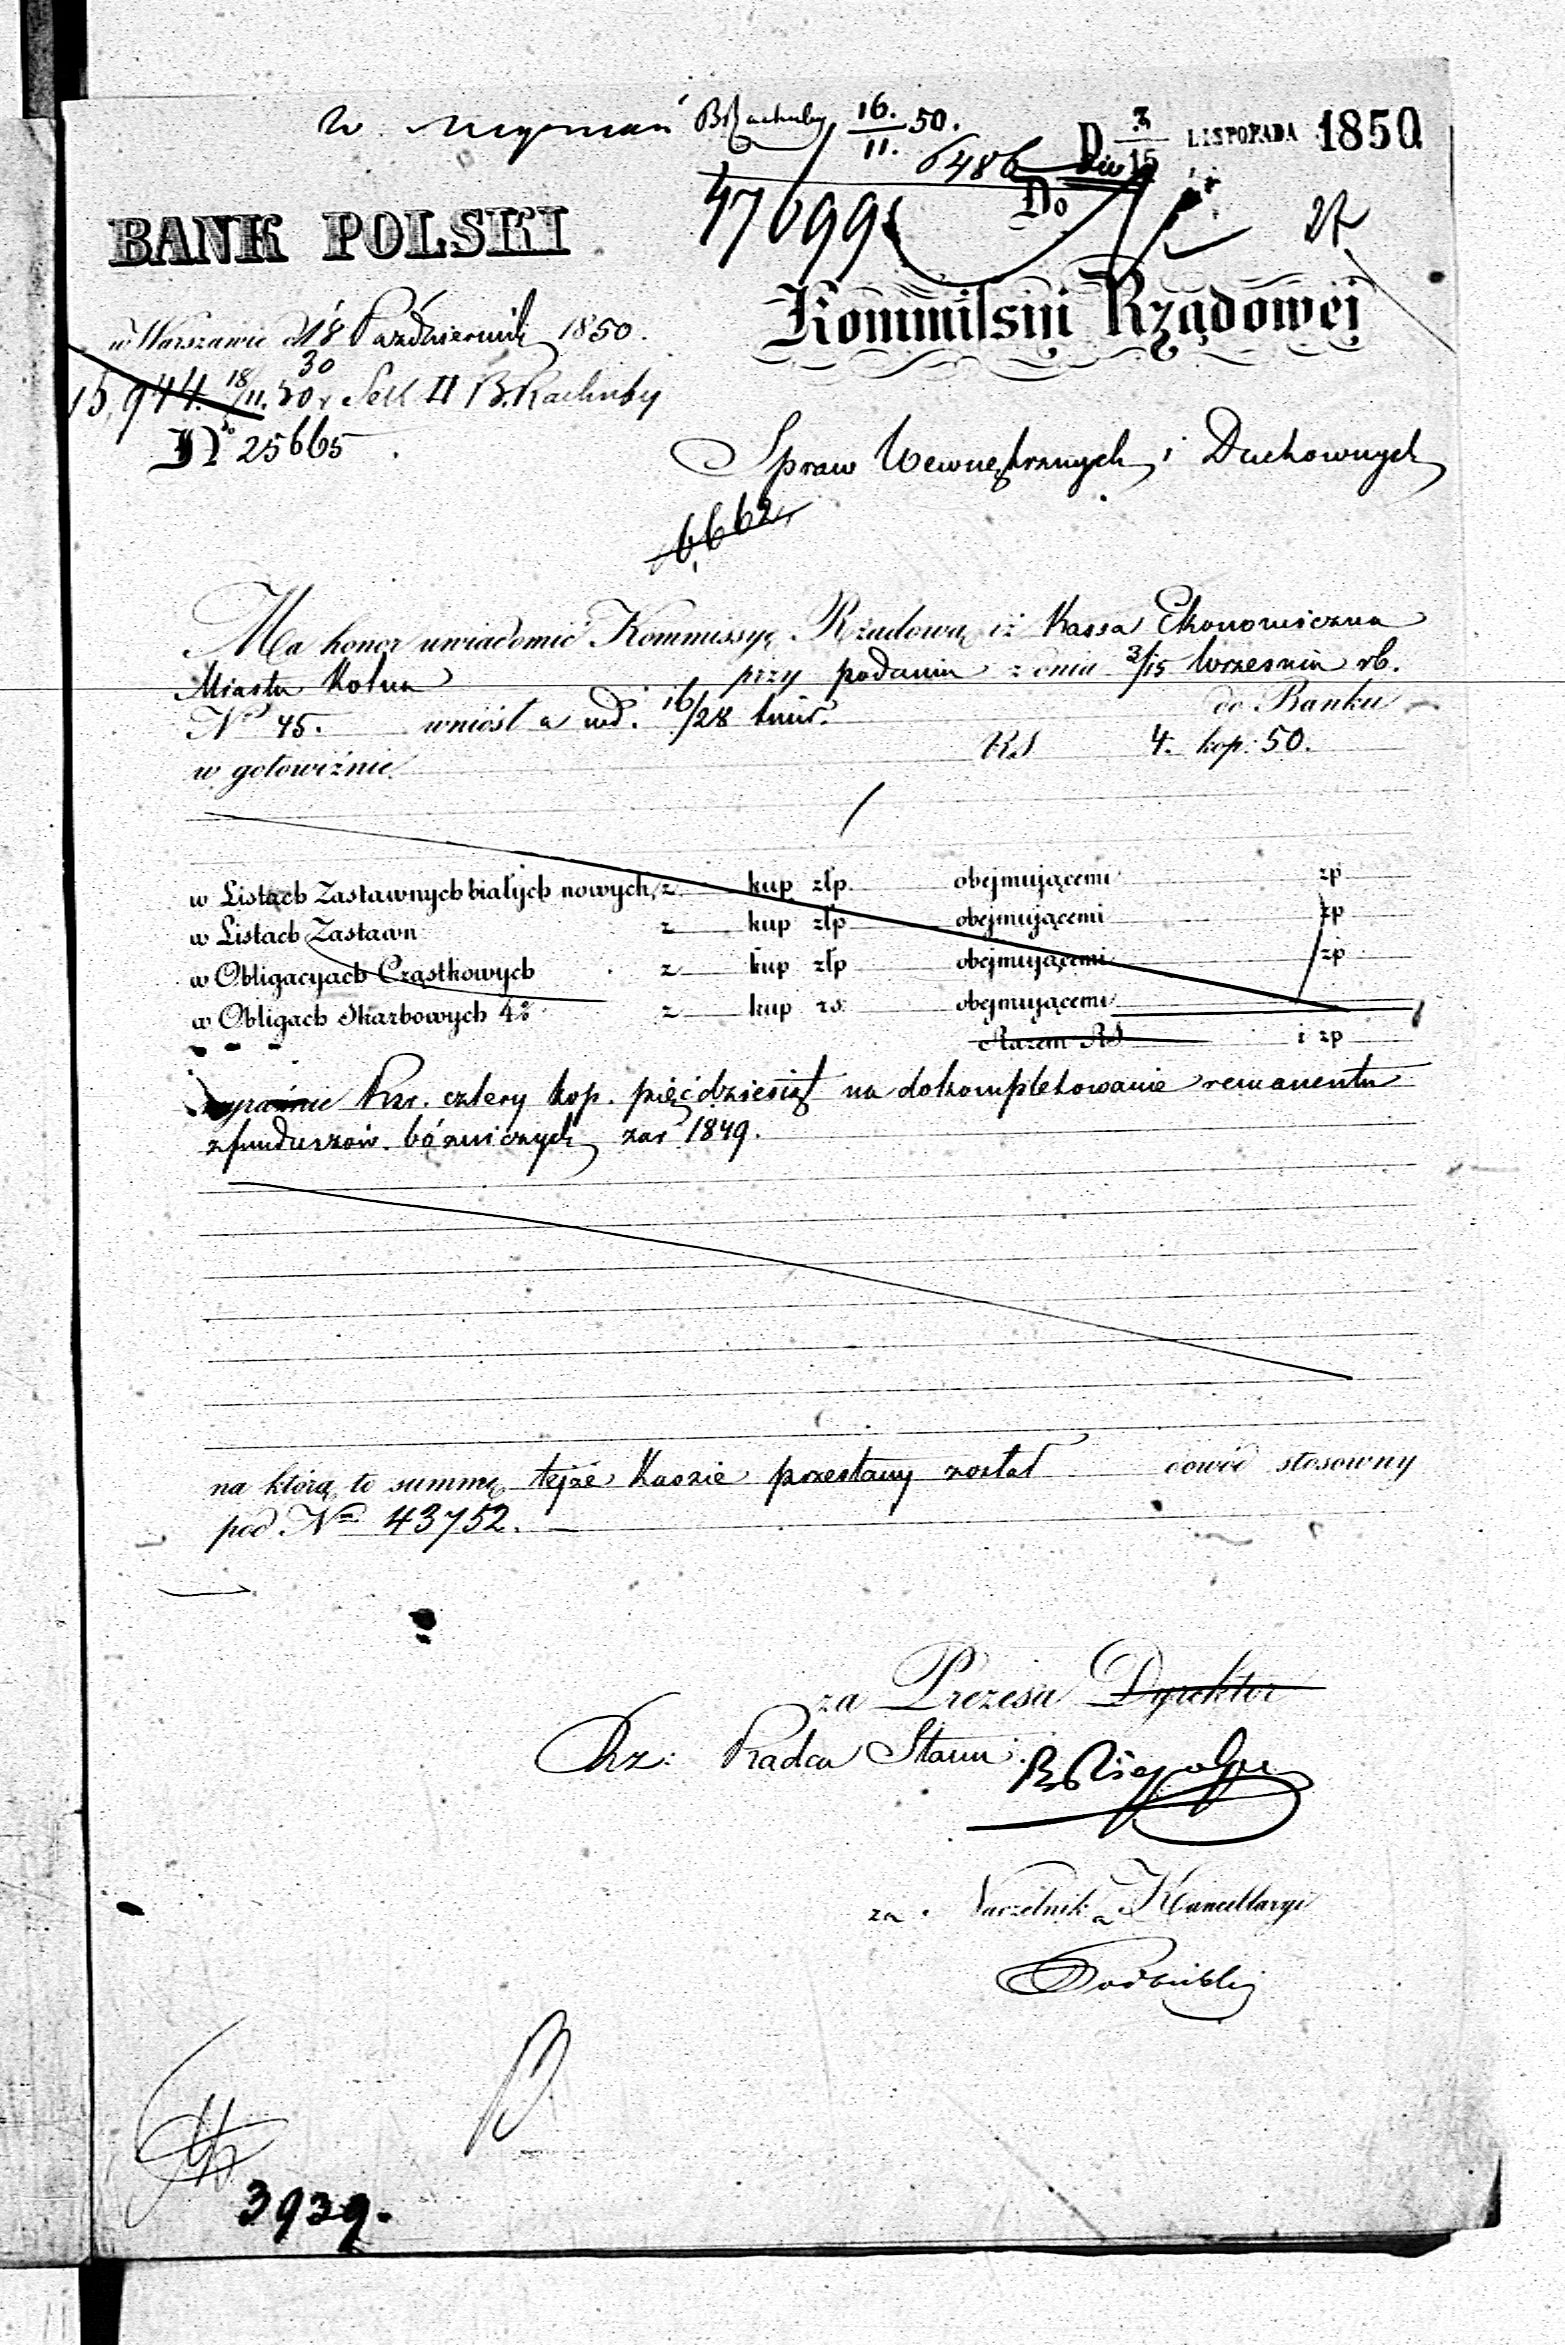 B Rachuby 16./11. 50.
D 3/15 LISTOPADA 1850
6486
47699
27
BANK POLSKI
Do
Kommissyi Rządowej
w Warszawie d 18/30 Październik 1850.
15,944. 18/11. 50 r Sek II B. Rachuby
No 25665
Spraw Wewnętrznych i Duchownych
6,662
Ma honor uwiadomić Kommissyę Rządową iż Kassa Ekonomiczna
Miasta Kolna przy podaniu z dnia 3/15 Września rb.
No 45. wniósł a md. 16/28 tmir. do Banku
w gotowiźnie RS 4. kop: 50.
w Listach Zastawnych białych nowych, z kup złp. obejmującemi zp
w Listach Zastawn z kup złp obejmującemi zp
w Obligacyach Cząstkowych z kup złp obejmującemi zp
w Obligach Skarbowych 4% z kup rs. obejmującemi
Razem RS i zp
wyraźnie Rsr. cztery kop. pięćdziesiąt na dokompletowanie remanentu
z funduszów bóżniczych za r 1849.
na którą to summę tejże Kassie przesłany został dowód stosowny
pod No 43752.
za Prezesa Dyrektor
Rz: Radca Stanu
za Naczelnika Kancellaryi
3939.